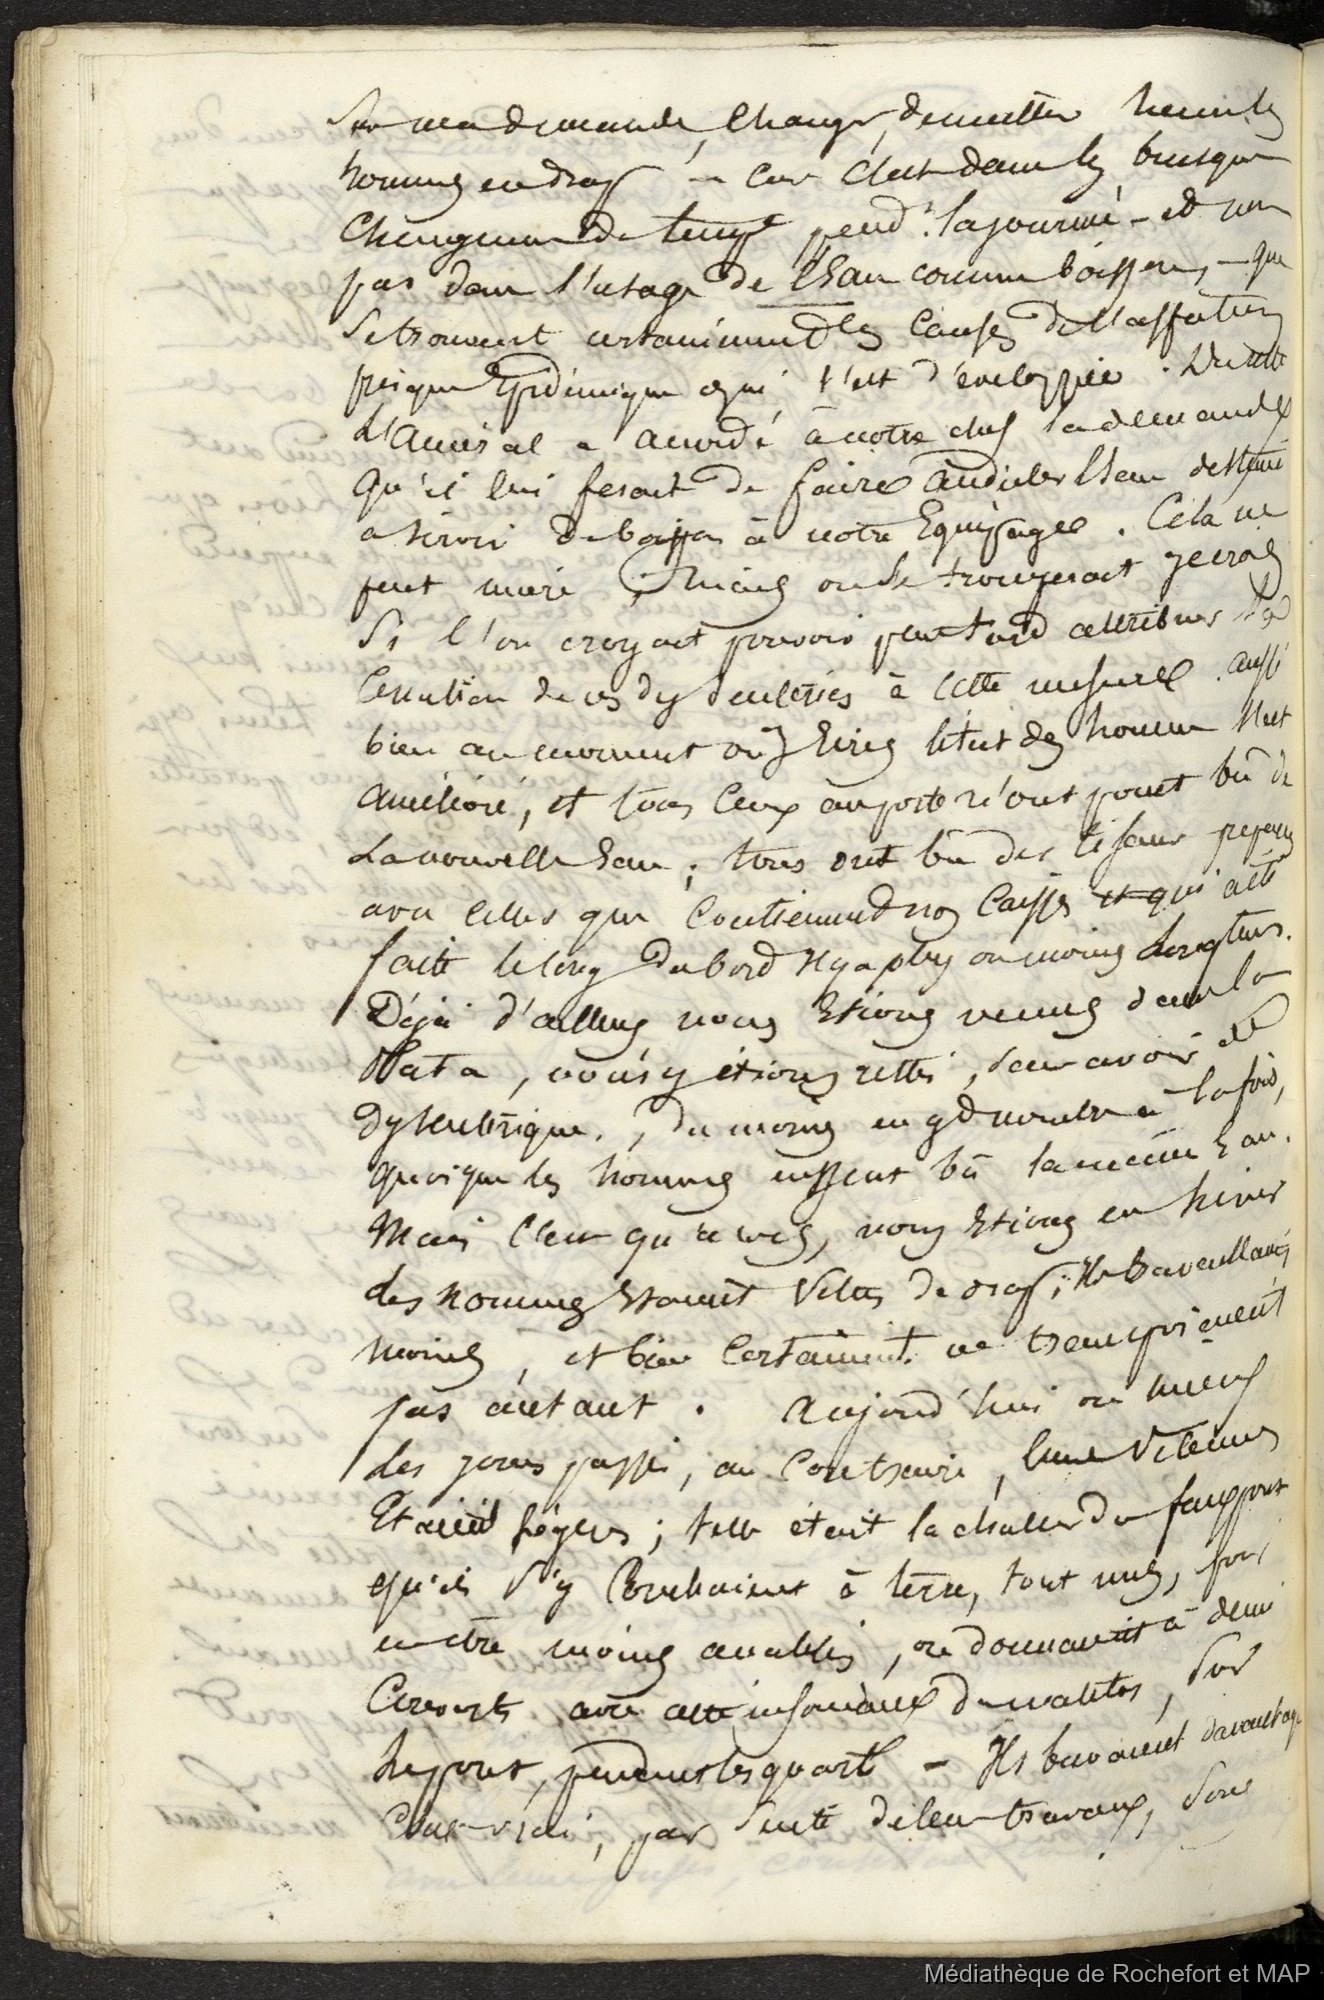 Sur ma demande, changer, de mettre hier les
hommes en drap — car c'est dans les brusques
changements de temps pend.t la journée — et non
pas dans l'usage de l'eau comme boisson, — que
se trouvent certainement les causes de l'affection
presque Epidémique qui s'est développée. Du reste
L'amiral a accordé à notre chef la demande
qu'il lui fesait de faire aciduler l'eau destinée
a servir de boisson à notre Equipage. Cela ne
peut nuire ; mais on se tromperait je crois
Si l'on croyait pouvoir plus tard attribuer la
Cessation de ces dyssenteries à cette mesure. aussi
bien au moment où j'écris l'état des hommes s'est
amélioré, et tous ceux au poste n'ont point bû de
La nouvelle Eau ; tous ont bû des tisanes préparées
avec celles que contiennent nos caisses et qui a été
faite le long du bord il y a plus ou moins Longtems.
Déjà d'ailleurs nous Etions venus dans la
Plata, nous y étions restés, sans avoir de
dyssentériques, du moins en gd nombre à la fois,
quoique les hommes eussent bû la même Eau.
Mais c'est qu'alors, nous Etions en hiver
des hommes Etaient Vêtus de drap ; Ils travaillaient
moins, et bien certainemt. ne transpiraient
pas autant. Aujourd'hui ou mieux
des jours passés, au contraire, leurs Vêtemens
Etaient légers ; telle était la chaleur du faux pont
qu'ils s'y couchaient à terre, tout nuds, pour
en être moins accablés, ou dormaient à demi
Couverts avec cette insouciance de matelots, sur
le pont, pendant les quarts — Ils buvaient davantage
C'est vrai, par suite de leurs travaux, sous